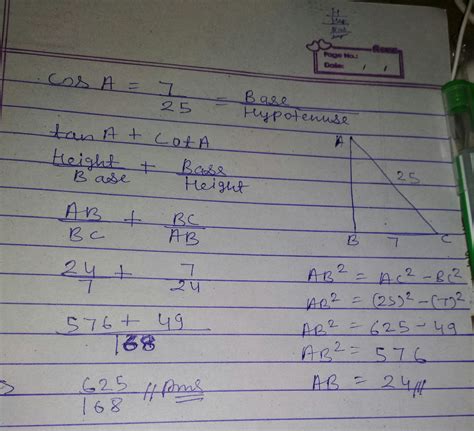 Page No.:
Date:
cos A = 7/25 = Base/Hypotenuse
tan A + Cot A
Height/Base + Base/Height
AB/BC + BC/AB
24/7 + 7/24
576 + 49/168
625/168 // Ans
A
25
B 7 C
AB² = AC² - BC²
AB² = (25)² - (7)²
AB² = 625 - 49
AB² = 576
AB = 24//